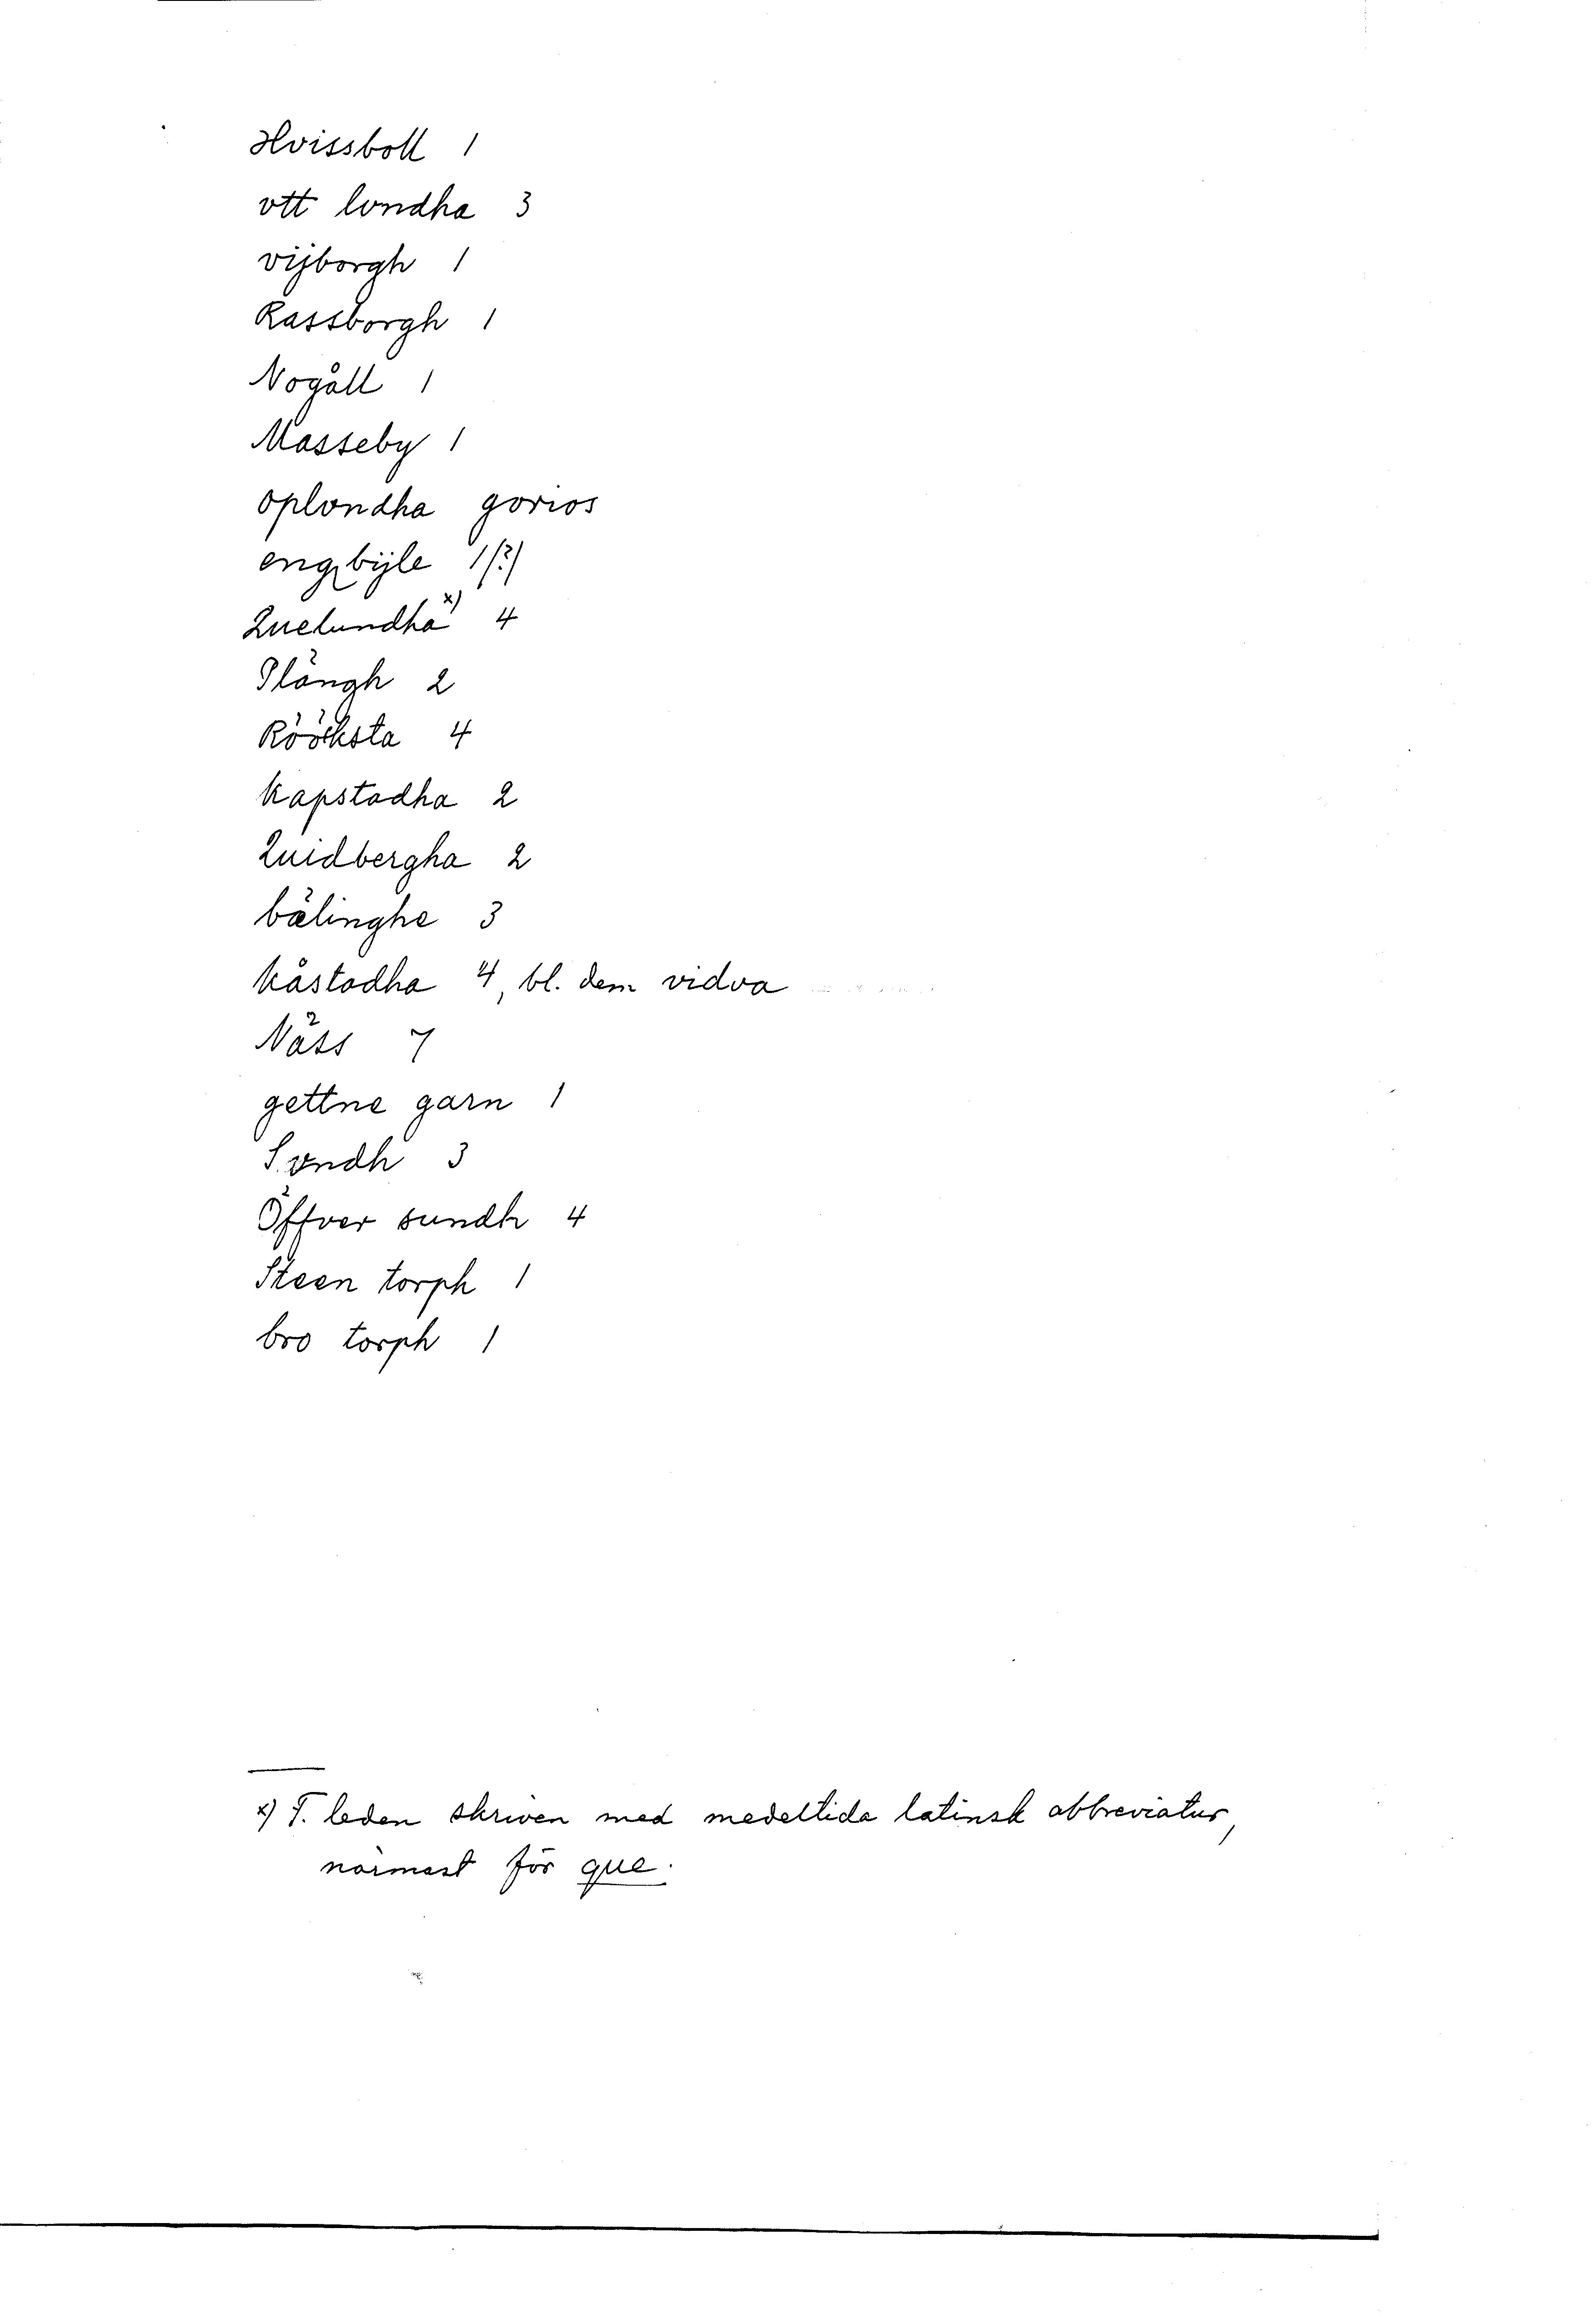 Hvissboll 1
vtt londha 3
vijborgh 1
Rassborgh 1
Nogåll 1
Masseby 1
oplondha gorios
engbijle 1(?)
Quelundha x) 4
Plängh 2
Rööksta 4
Kapstadha 2
Quidbergha 2
bälinghe 3
Kåstadha 4, bl. dem vidva
Näss 7
gettne garn 1
Svndh 3
Öffver sundh 4
Steen torph 1
bro torph 1
x) F. leden skriven med medeltida latinsk abbreviatur,
närmast för que.